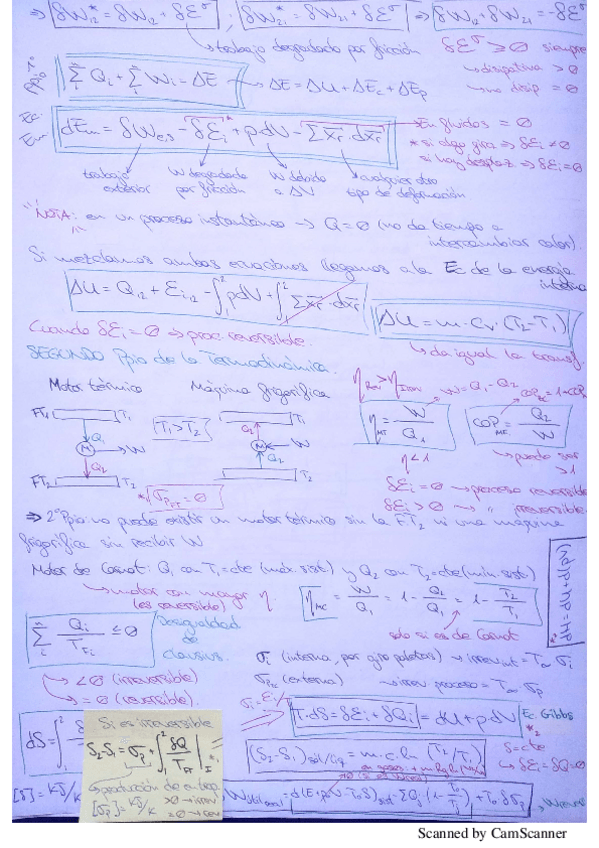 ⇒ δW₁₂* = δW₁₂ + δƐᵅ ; δW₂₁* = δW₂₁ + δƐᵅ ⇒ W₁₂ + W₂₁ = -δƐᵅ
↳ trabajo degradado por fricción δƐᵅ ≥ 0 siempre
↳ disipativa > 0
↳ no disip = 0
Σ Qᵢ + Σ Wᵢ = ΔE → ΔE = ΔU + ΔEc + ΔEp
dEm = δWe,s - δƐᵢ + pdV - Σ Xr · dxr → En fluidos = 0
* si algo gira ⇒ δƐᵢ ≠ 0
si hay desplaz ⇒ δƐᵢ = 0
trabajo exterior
W degradado por fricción
W debido a ΔV
cualquier otro tipo de deformación
"NOTA: en un proceso instantáneo → Q = 0 (no da tiempo a
intercambiar calor).
Si mezclamos ambas ecuaciones llegamos a la Ec de la energía
interna
ΔU = Q₁₂ + Ɛᵢ₁₂ - ∫₁² pdV + ∫₁² Σ Xr · dxr
ΔU = m · Cv · (T₂ - T₁)
Cuando δƐᵢ = 0 ⇒ proc. reversible.
↳ da igual la transf.
SEGUNDO Ppio de la Termodinámica.
Motor térmico Máquina frigorífica
η Rev > η Irrev
W = Q₁ - Q₂
FT₁ T₁ T₁ > T₂ T₁
Q₁ M W Q₂
FT₂ T₂ Q₁ M W T₂
η MT = W / Q₁
COP MF = Q₂ / W
η < 1
↳ puede ser > 1
δƐᵢ = 0 → proceso reversible
δƐᵢ > 0 → " irreversible.
* σp FT = 0
⇒ 2º Ppio no puede existir un motor térmico sin la FT₂ ni una máquina
frigorífica sin recibir W
dH = dU + d(pV)
Motor de Carnot: Q₁ con T₁ = cte (máx. sist) y Q₂ con T₂ = cte (min. sist)
↳ motor con mayor η
(es reversible)
η MC = W / Q₁ = 1 - Q₂ / Q₁ = 1 - T₂ / T₁
solo si es de Carnot
Σ Qᵢ / T Fᵢ ≤ 0
Desigualdad de Clausius.
↳ < 0 (irreversible)
↳ = 0 (reversible).
σᵢ (interna, por giro paletas) → irrev int = T∞ σᵢ
(externa) → irrev. proceso = T∞ σp
T · dS = δƐᵢ + δQᵢ = dU + pdV Ec. Gibbs
dS = ∫₁² δ
Si es irreversible
S₂ - S₁ = σp + ∫₁² δQ / T FT
↳ producción de entrop
[σp] = kJ/K > 0 → irrev
= 0 → rev
(S₂ - S₁) sol/liq = m · c · ln (T₂ / T₁)
S = cte
↳ δƐᵢ = δQ = 0
[S] = kJ/K
Scanned by CamScanner